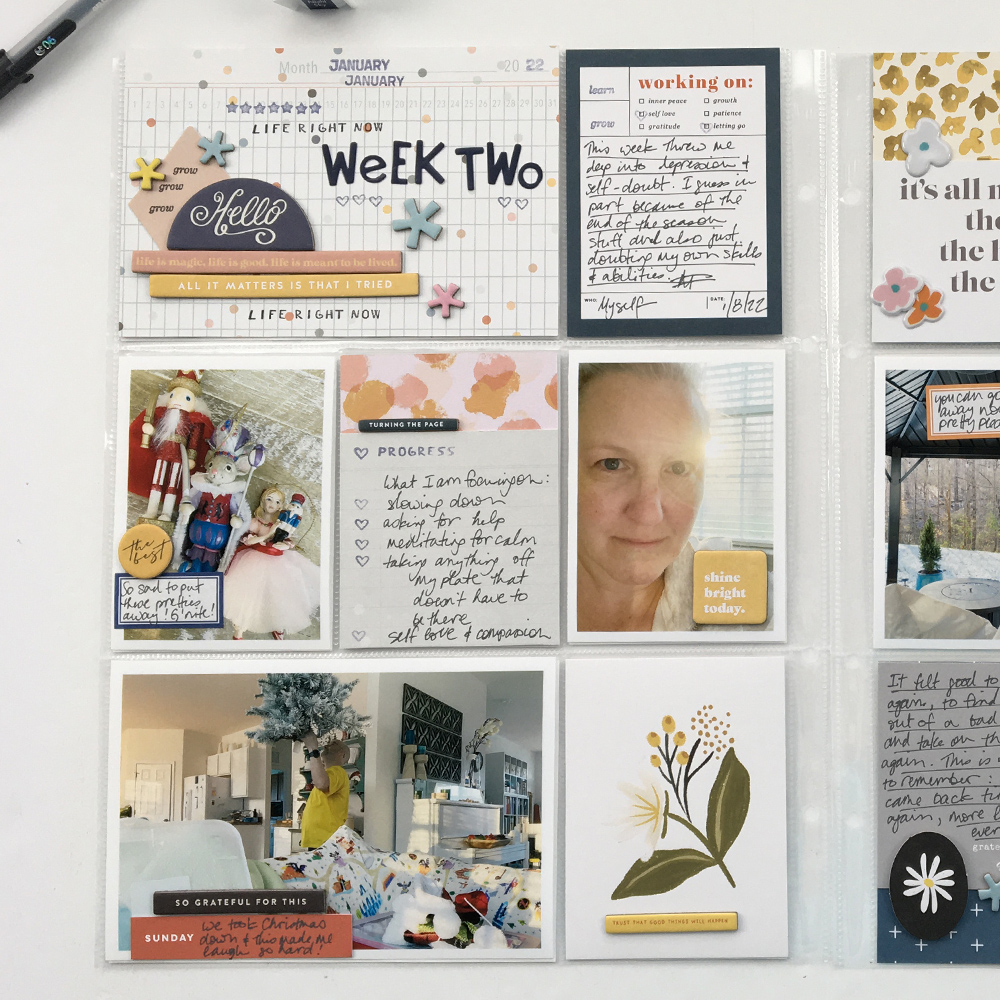 06
Month JANUARY 20 22
JANUARY
LIFE RIGHT NOW
WeEK TWo
grow
grow
grow
Hello
life is magic. life is good. life is meant to be lived.
ALL IT MATTERS IS THAT I TRIED
LIFE RIGHT NOW
learn
grow
working on:
inner peace
growth
self love
patience
gratitude
letting go
This week threw me
deep into depression &
self-doubt. I guess in
part because of the
end of the season
stuff and also just
doubting my own skills
& abilities.
WHO: Myself
DATE: 1/8/22
it's all
the
the
the
the best
So sad to put
these pretties
away! G'nite!
TURNING THE PAGE
PROGRESS
What I am focusing on:
slowing down
asking for help
meditating for calm
taking anything off
my plate that
doesn't have to
be there
self love & compassion
shine
bright
today.
you can go
away now
pretty
SO GRATEFUL FOR THIS
SUNDAY
we took Christmas
down & this made me
laugh so hard!
TRUST THAT GOOD THINGS WILL HAPPEN
It felt good to
again, to find
out of a bad
and take on the
again. This is
to remember:
came back
again, more
ever
grate